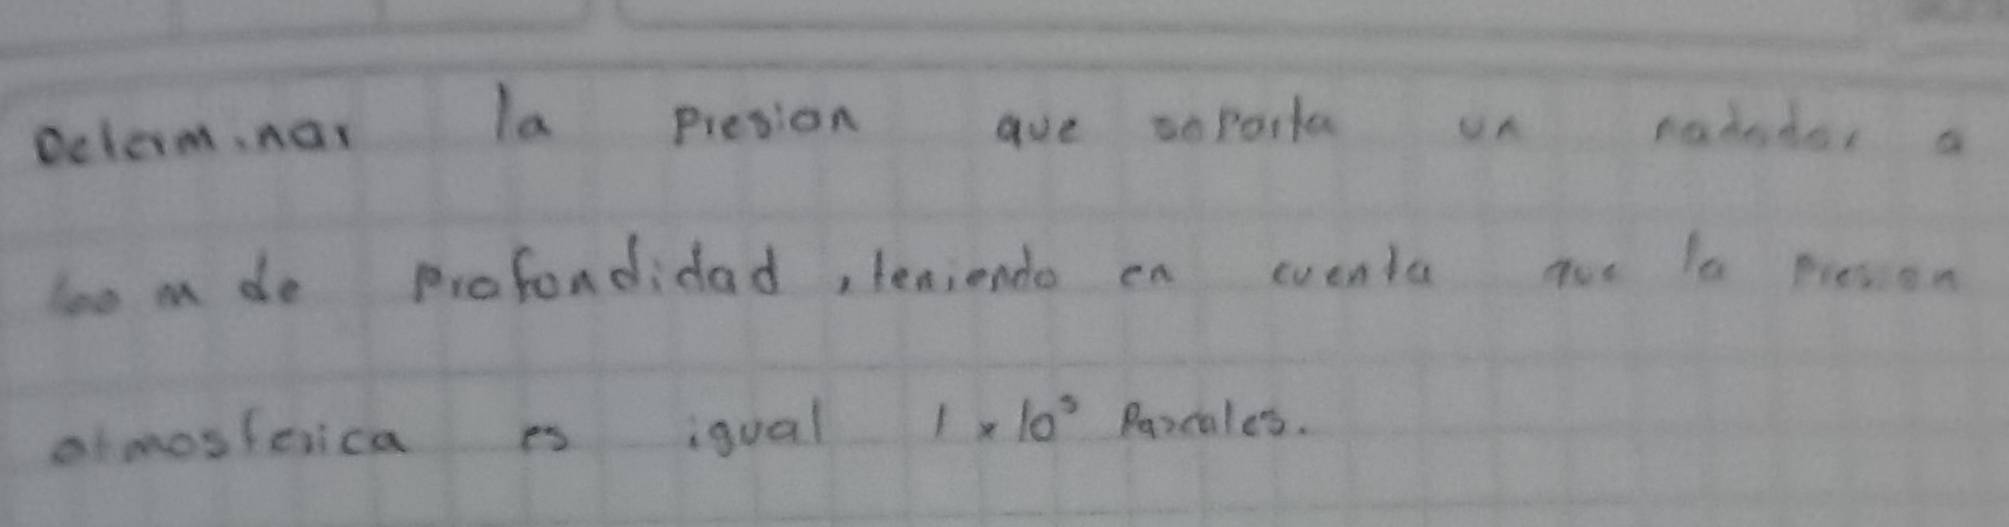 Determinar la Presion que soporta un nadador a
100 m de profondidad, teniendo en cuenta que la presion
atmosferica es igual 1 x 10⁵ Pascales.